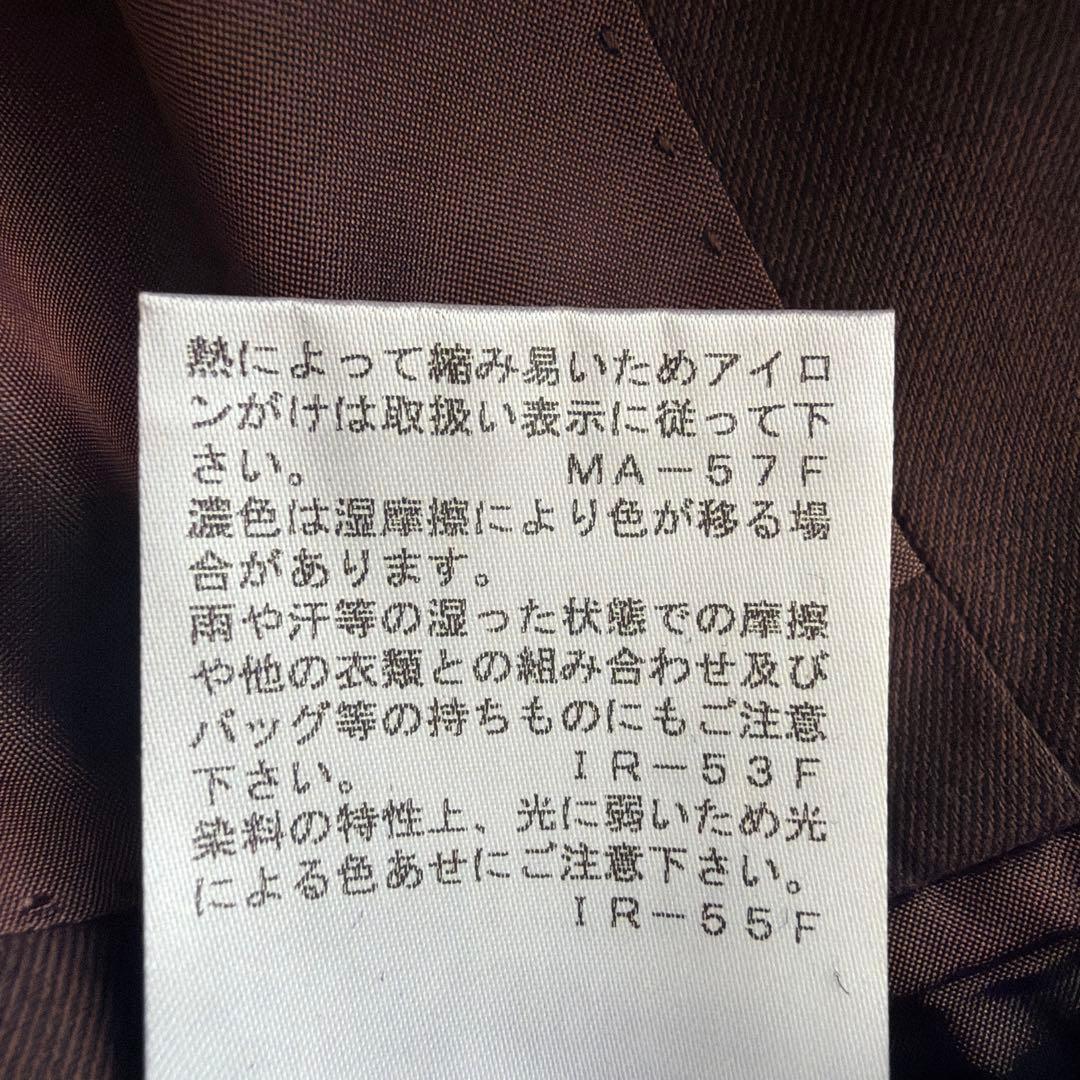 熱によって縮み易いためアイロ
ンがけは取扱い表示に従って下
さい。 MA-57F
濃色は湿摩擦により色が移る場
合があります。
雨や汗等の湿った状態での摩擦
や他の衣類との組み合わせ及び
バッグ等の持ちものにもご注意
下さい。 IR-53F
染料の特性上、光に弱いため光
による色あせにご注意下さい。
IR-55F